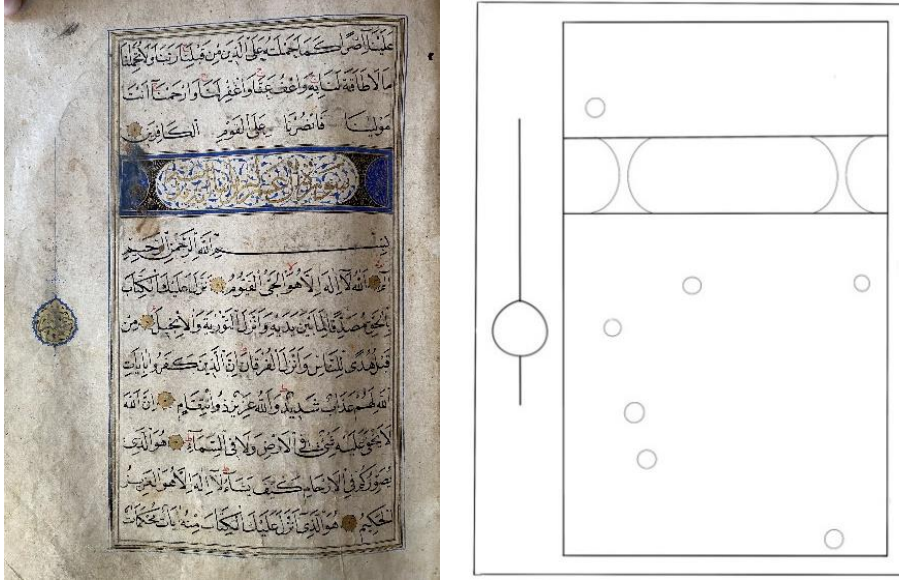 علينا اصرا كما حملته على الذين من قبلنا ربنا ولا تحملنا
ما لا طاقة لنا به واعف عنا واغفر لنا وارحمنا انت
مولينا فانصرنا على القوم الكافرين
سورة آل عمران
بسم الله الرحمن الرحيم
الم الله لا اله الا هو الحي القيوم نزل عليك الكتاب
بالحق مصدقا لما بين يديه وانزل التورية والانجيل من
قبل هدى للناس وانزل الفرقان ان الذين كفروا بايات
الله لهم عذاب شديد والله عزيز ذو انتقام ان الله
لا يخفى عليه شيء في الارض ولا في السماء هو الذي
يصوركم في الارحام كيف يشاء لا اله الا هو العزيز
الحكيم هو الذي انزل عليك الكتاب منه ايات محكمات